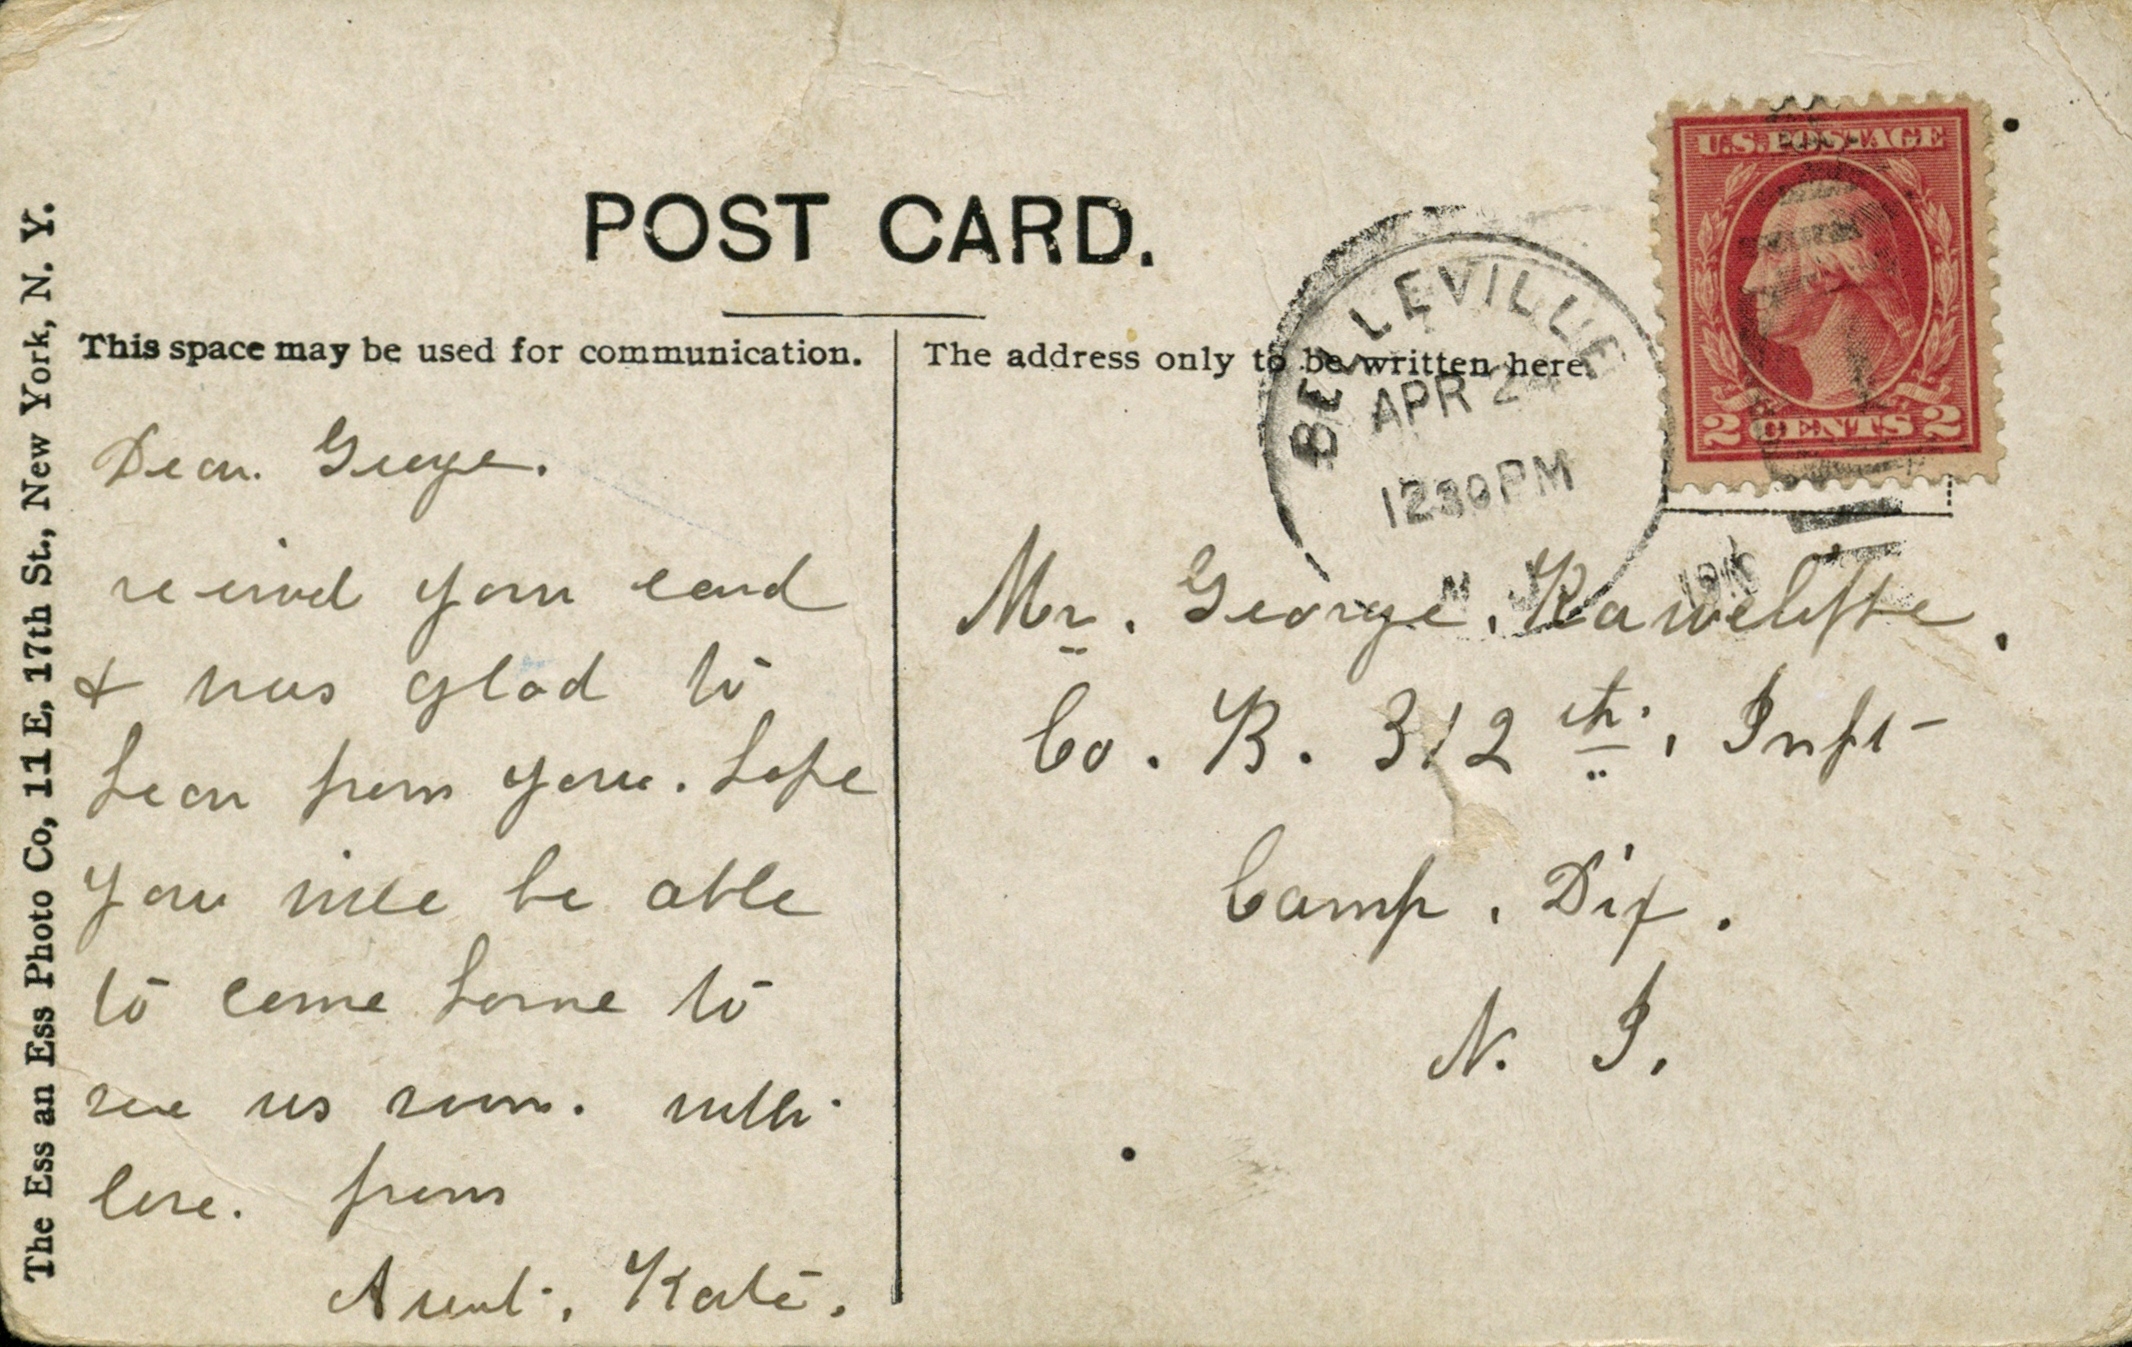 POST CARD.
This space may be used for communication.
The address only to be written here.
The Ess an Ess Photo Co, 11 E, 17th St., New York, N. Y.
U.S. POSTAGE
2 CENTS 2
BELLEVILLE
APR 24
1230PM
N J
Dear George.
received your card
& was glad to
hear from you. hope
you will be able
to come home to
see us soon. with
love. from
Aunt, Kate.
Mr. George, Rawcliffe.
Co. B. 312th, Inft
Camp. Dix.
N. J.